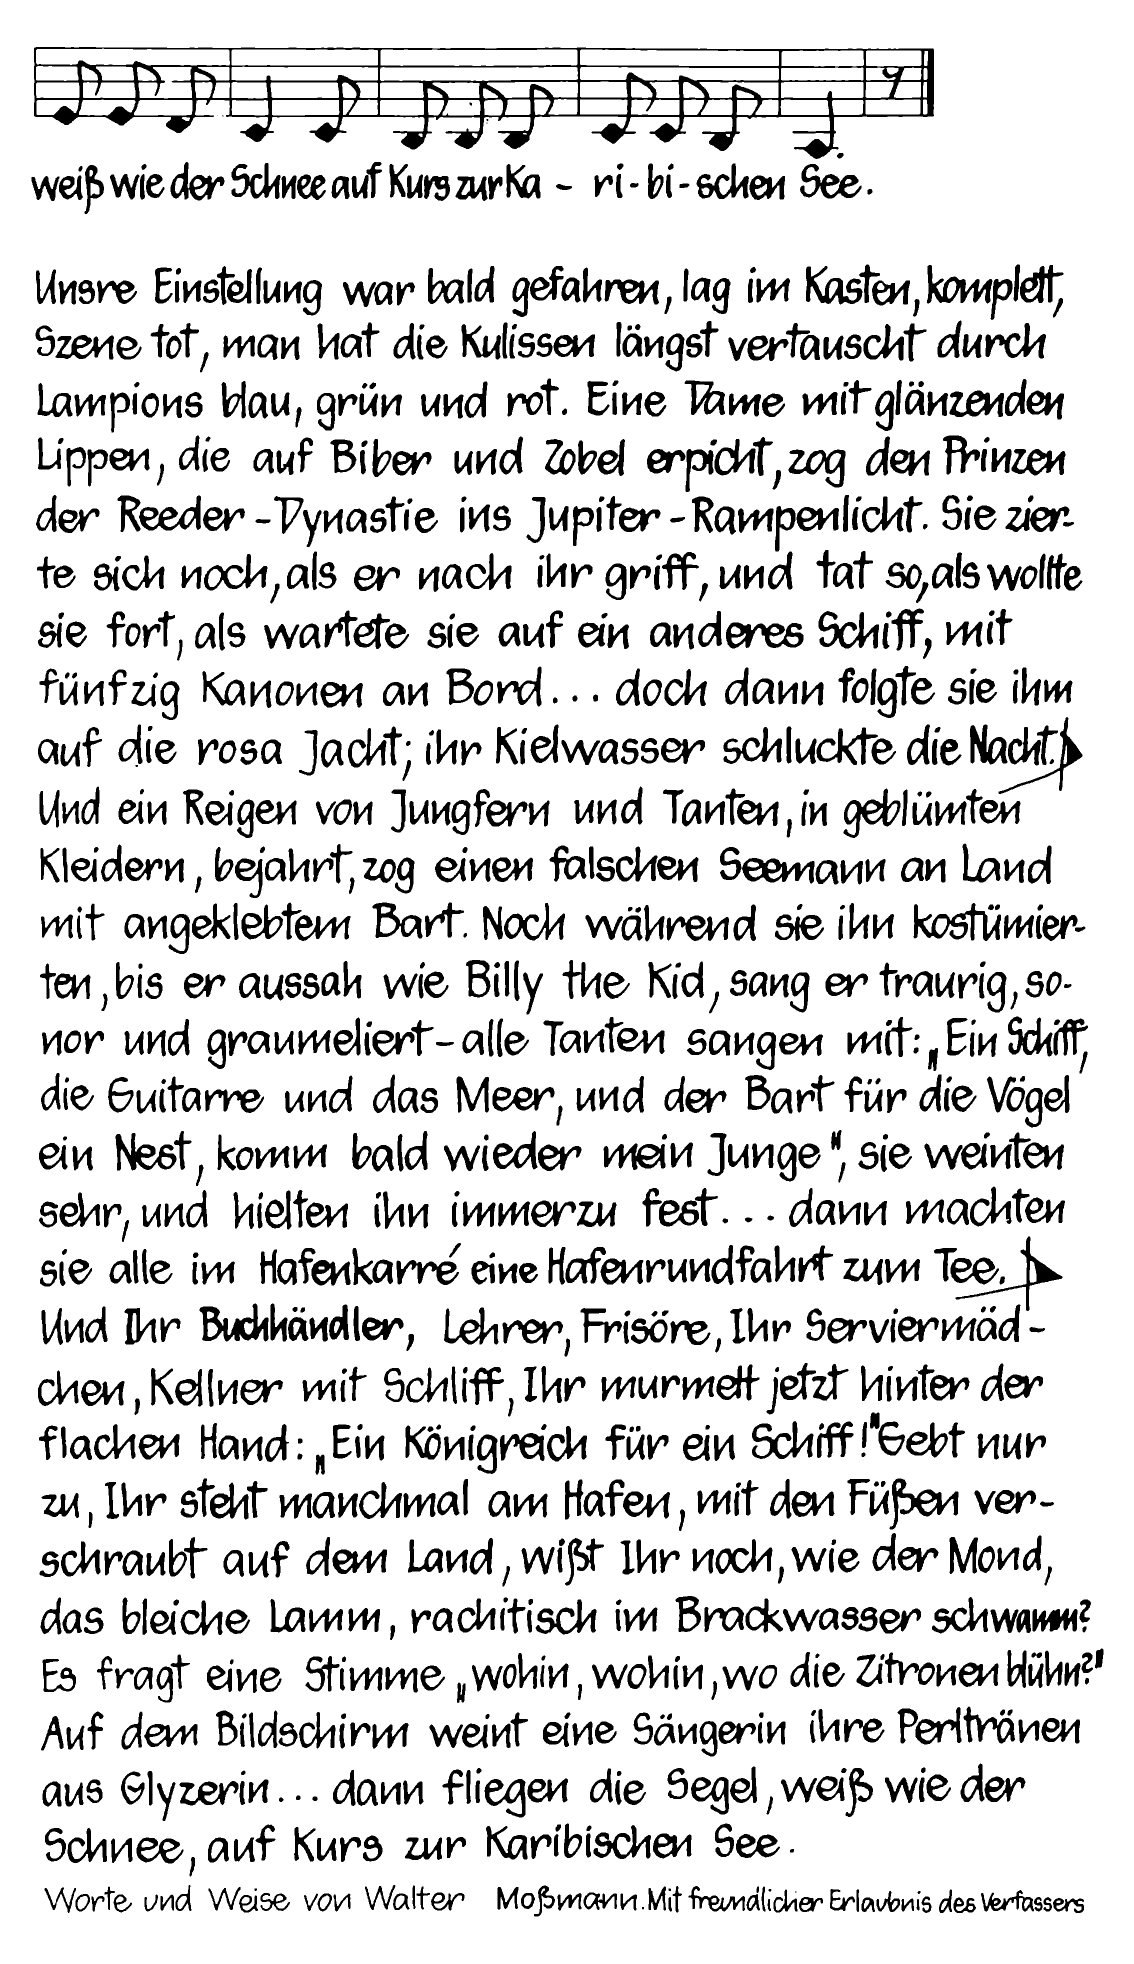 weiß wie der Schnee auf Kurs zur Ka - ri - bi - schen See.
Unsre Einstellung war bald gefahren, lag im Kasten, komplett,
Szene tot, man hat die Kulissen längst vertauscht durch
Lampions blau, grün und rot. Eine Dame mit glänzenden
Lippen, die auf Biber und Zobel erpicht, zog den Prinzen
der Reeder-Dynastie ins Jupiter-Rampenlicht. Sie zier-
te sich noch, als er nach ihr griff, und tat so, als wollte
sie fort, als wartete sie auf ein anderes Schiff, mit
fünfzig Kanonen an Bord... doch dann folgte sie ihm
auf die rosa Jacht; ihr Kielwasser schluckte die Nacht.
Und ein Reigen von Jungfern und Tanten, in geblümten
Kleidern, bejahrt, zog einen falschen Seemann an Land
mit angeklebtem Bart. Noch während sie ihn kostümier-
ten, bis er aussah wie Billy the Kid, sang er traurig, so-
nor und graumeliert - alle Tanten sangen mit: „Ein Schiff,
die Guitarre und das Meer, und der Bart für die Vögel
ein Nest, komm bald wieder mein Junge", sie weinten
sehr, und hielten ihn immerzu fest... dann machten
sie alle im Hafenkarré eine Hafenrundfahrt zum Tee.
Und Ihr Buchhändler, Lehrer, Frisöre, Ihr Serviermäd-
chen, Kellner mit Schliff, Ihr murmelt jetzt hinter der
flachen Hand: „Ein Königreich für ein Schiff!" Gebt nur
zu, Ihr steht manchmal am Hafen, mit den Füßen ver-
schraubt auf dem Land, wißt Ihr noch, wie der Mond,
das bleiche Lamm, rachitisch im Brackwasser schwamm?
Es fragt eine Stimme „wohin, wohin, wo die Zitronen blühn?"
Auf dem Bildschirm weint eine Sängerin ihre Perltränen
aus Glyzerin... dann fliegen die Segel, weiß wie der
Schnee, auf Kurs zur Karibischen See.
Worte und Weise von Walter Moßmann. Mit freundlicher Erlaubnis des Verfassers